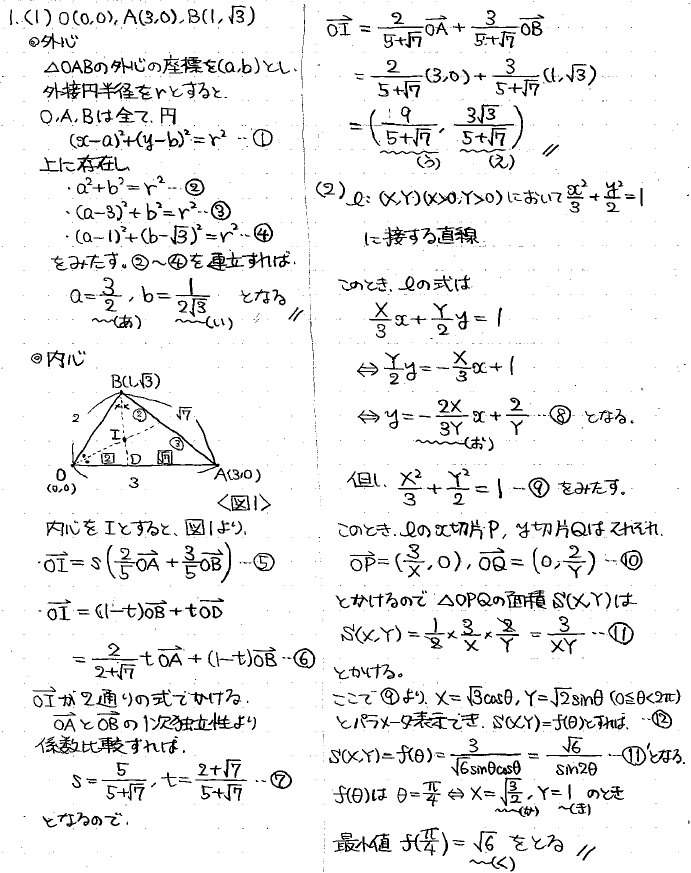 1.(1) O(0,0), A(3,0), B(1,√3)
◎外心
△OABの外心の座標を(a,b)とし、
外接円半径をrとすると、
O,A,Bは全て、円
(x-a)²+(y-b)²=r² …①
上に存在し、
・a²+b²=r² …②
・(a-3)²+b²=r² …③
・(a-1)²+(b-√3)²=r² …④
をみたす。②〜④を連立すれば、
a=3/2, b=1/(2√3) となる //
(あ) (い)
◎内心
B(1,√3)
2 ② √7
I ③
O 2 D √7 A(3,0)
(0,0) 3
<図1>
内心をIとすると、図1より、
・OI=s(2/5 OA+3/5 OB) …⑤
・OI=(1-t)OB+tOD
=2/(2+√7) tOA+(1-t)OB …⑥
OIが2通りの式でかける。
OAとOBの1次独立性より
係数比較すれば、
s=5/(5+√7), t=(2+√7)/(5+√7) …⑦
となるので、
OI=2/(5+√7) OA+3/(5+√7) OB
=2/(5+√7) (3,0)+3/(5+√7) (1,√3)
=(9/(5+√7), 3√3/(5+√7)) //
(う) (え)
(2) l:(X,Y)(X>0,Y>0)において x²/3+y²/2=1
に接する直線
このとき、lの式は
X/3 x+Y/2 y=1
⇔ Y/2 y=-X/3 x+1
⇔ y=-2X/3Y x+2/Y …⑧ となる。
(お)
但し、X²/3+Y²/2=1 …⑨ をみたす。
このとき、lのx切片P, y切片Qはそれぞれ、
OP=(3/X,0), OQ=(0,2/Y) …⑩
とかけるので △OPQの面積 S(X,Y)は
S(X,Y)=1/2×3/X×2/Y=3/XY …⑪
とかける。
ここで⑨より、X=√3cosθ, Y=√2sinθ (0≦θ<2π)
とパラメータ表示でき、S(X,Y)=f(θ)とすれば、…⑫
S(X,Y)=f(θ)=3/(√6sinθcosθ)=√6/sin2θ …⑪'となる。
f(θ)は θ=π/4 ⇔ X=√(3/2), Y=1 のとき
(か) (き)
最小値 f(π/4)=√6 をとる //
(く)